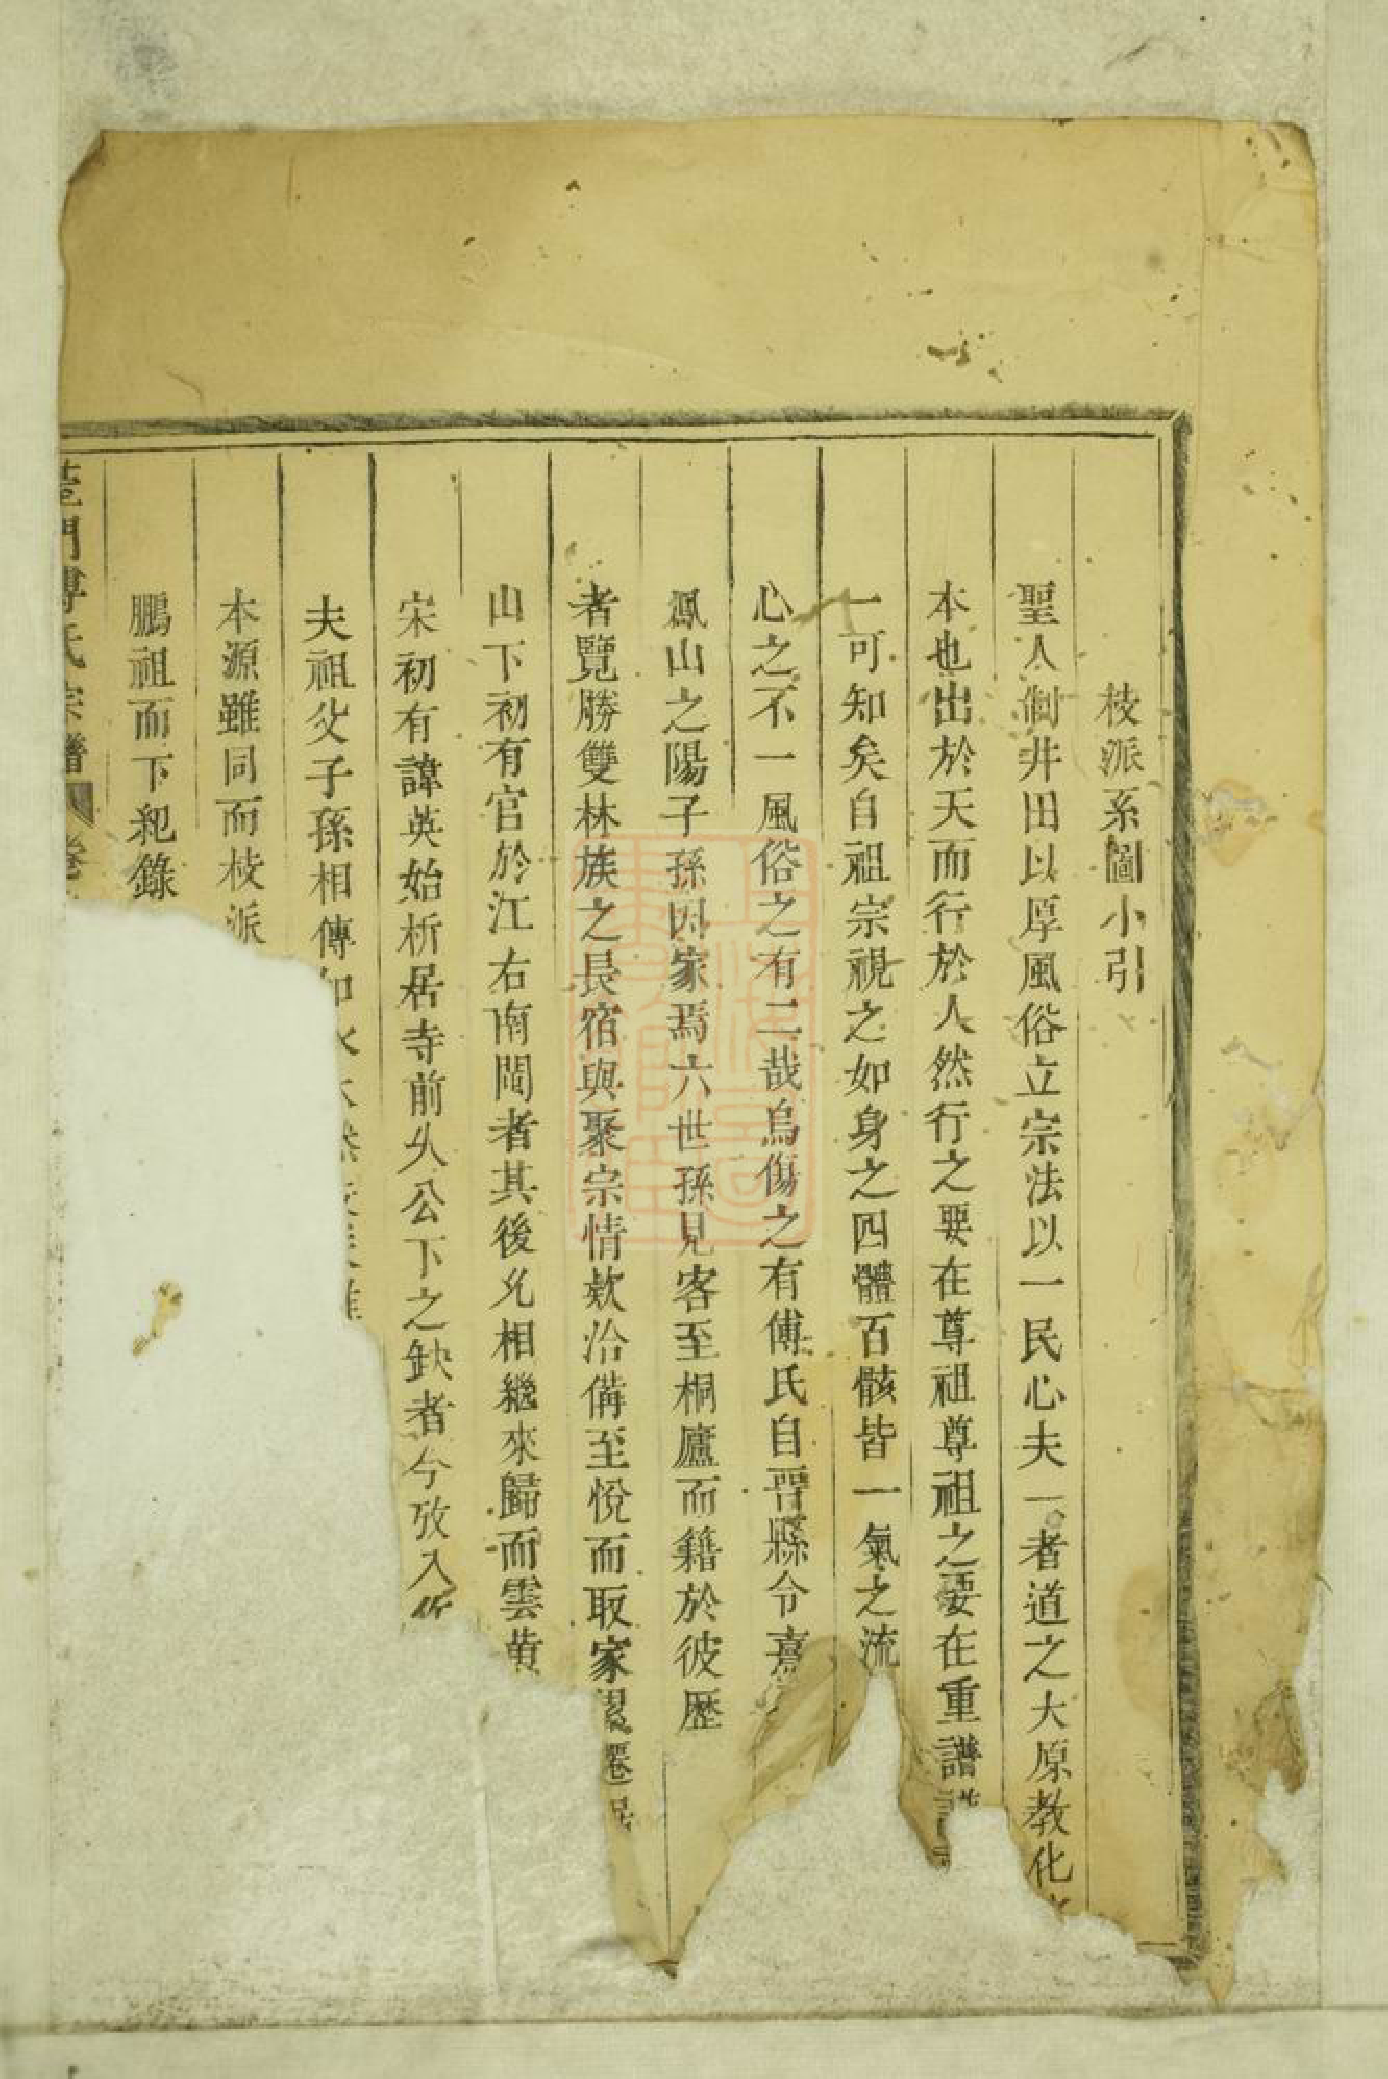 枝派系圖小引
聖人制井田以厚風俗立宗法以一民心夫一者道之大原教化
本也出於天而行於人然行之要在尊祖尊祖之要在重譜
一可知矣自祖宗視之如身之四體百骸皆一氣之流
心之不一風俗之有二哉烏傷之有傅氏自晋縣令
鳳山之陽子孫因家焉六世孫見客至桐廬而籍於彼歷
者覽勝雙林族之長宿與聚宗情欵洽備至悅而取家
山下初有官於江右南閩者其後允相繼來歸而雲黄
宋初有諱英始析居寺前久公下之缺者今攷入
夫祖父子孫相傳如水木
本源雖同而枝派
鵬祖而下紀錄
門傅氏宗譜 卷
上海圖書館藏